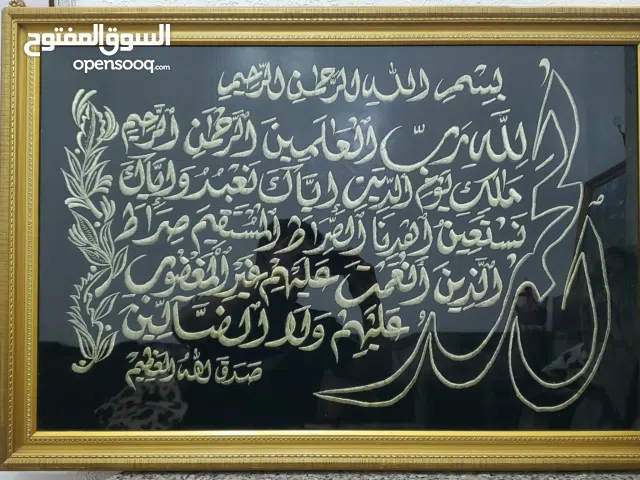 السوق المفتوح
opensooq.com
بسم الله الرحمن الرحيم
الحمد لله رب العلمين الرحمن الرحيم
ملك يوم الدين اياك نعبد واياك
نستعين اهدنا الصراط المستقيم صراط
الذين أنعمت عليهم غير المغضوب
عليهم ولا الضالين
صدق الله العظيم